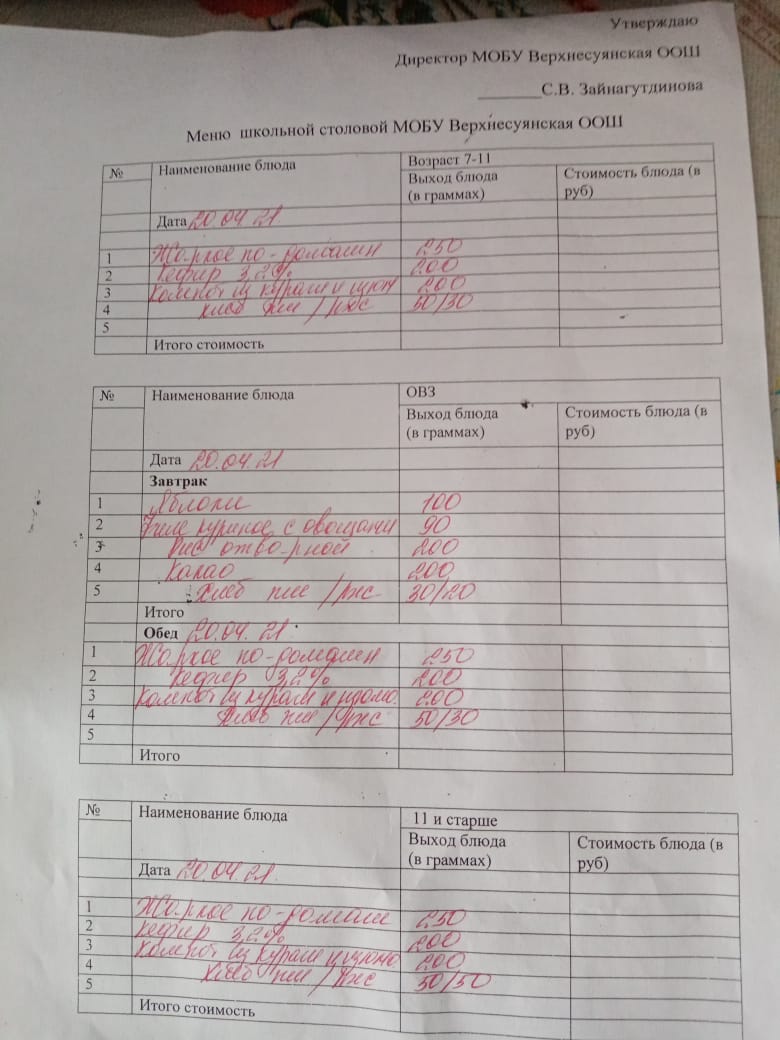 Утверждаю
Директор МОБУ Верхнесуянская ООШ
_______С.В. Зайнагутдинова
Меню школьной столовой МОБУ Верхнесуянская ООШ
№ Наименование блюда Возраст 7-11
Выход блюда (в граммах) Стоимость блюда (в руб)
Дата 20 04 21
1 Жаркое по-домашн 250
2 Кефир 3,2% 200
3 Компот из кураги и изюм 200
4 хлеб пше/ржс 50/30
5
Итого стоимость
№ Наименование блюда ОВЗ
Выход блюда (в граммах) Стоимость блюда (в руб)
Дата 20.04.21
Завтрак
1 Яблоки 100
2 Филе куриное с овощами 90
3 Рис отварной 200
4 Какао 200
5 Хлеб пше/ржс 30/20
Итого
Обед 20.04.21
1 Жаркое по-домашн 250
2 Кефир 3,2% 200
3 Компот из кураги и изюма. 200
4 Хлеб пше/ржс 50/30
5
Итого
№ Наименование блюда 11 и старше
Выход блюда (в граммах) Стоимость блюда (в руб)
Дата 20.04 21
1 Жаркое по-домаш 250
2 Кефир 3,2% 200
3 Компот из кураги и изюма. 200
4 Хлеб пше/ржс 50/50
5
Итого стоимость